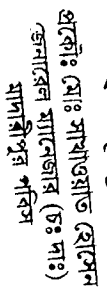 প্রকৌঃ মোঃ সাখাওয়াত হোসেন
জেনারেল ম্যানেজার (চঃ দাঃ)
মাদারীপুর পবিস